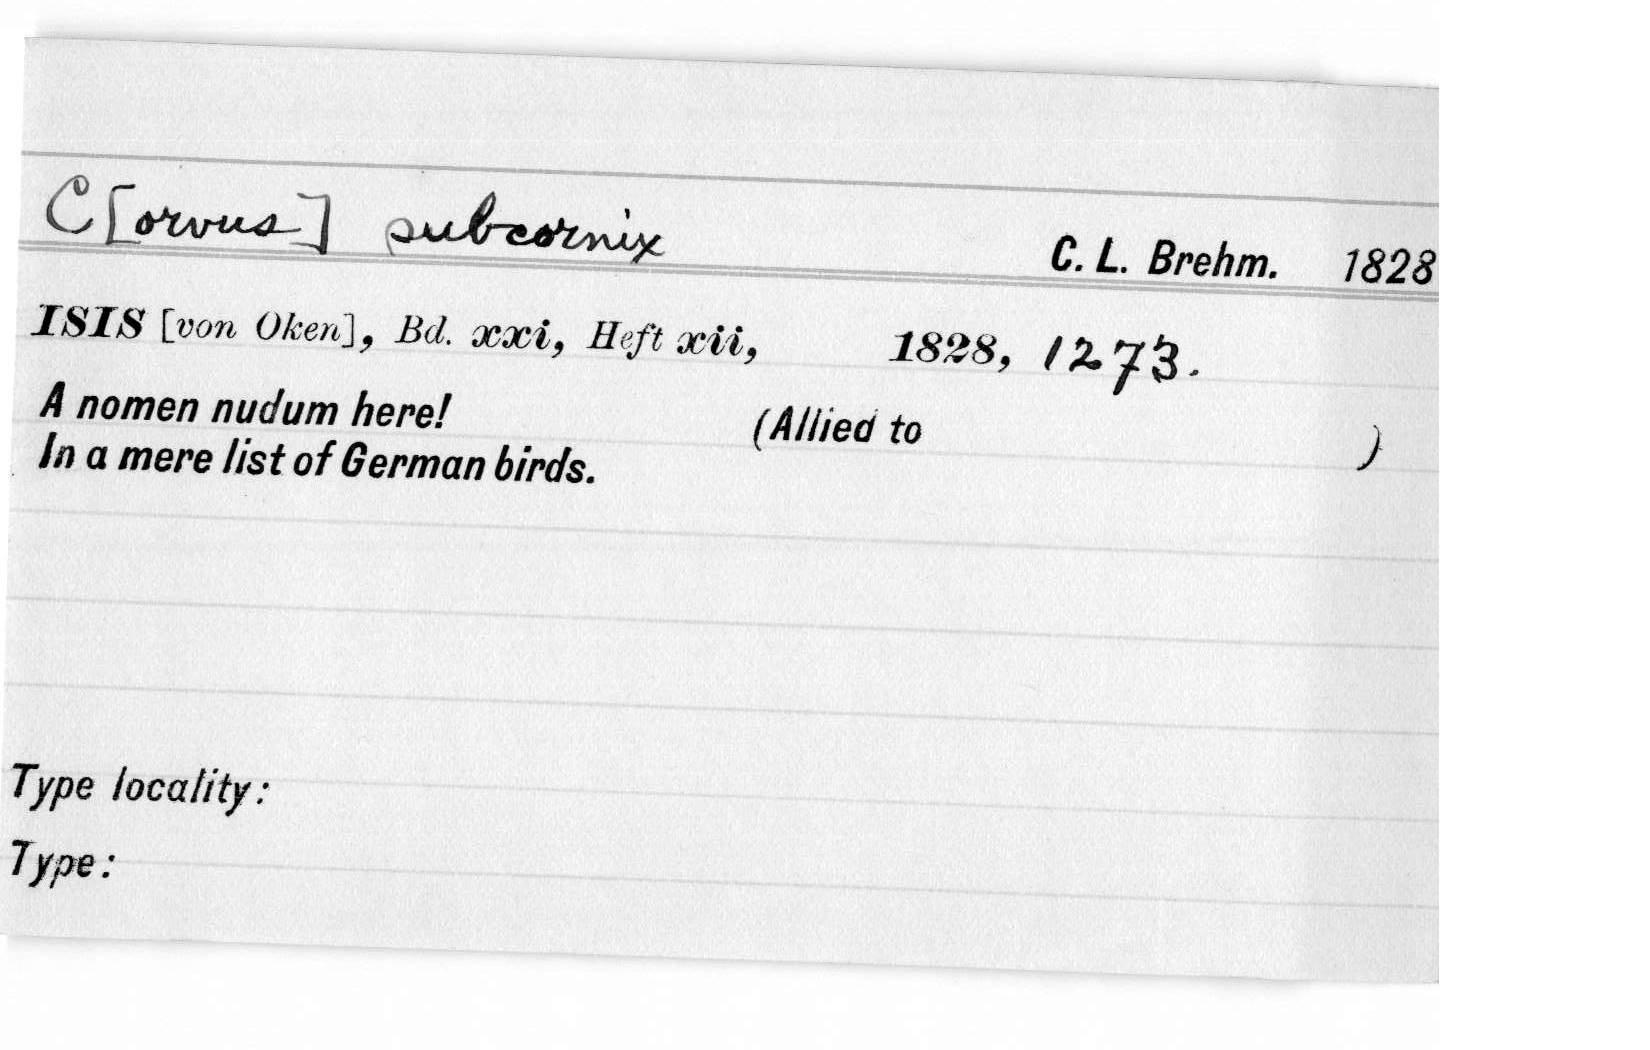 C[orvus] subcornix C. L. Brehm. 1828
ISIS [von Oken], Bd. xxi, Heft xii, 1828, 1273.
A nomen nudum here! (Allied to )
In a mere list of German birds.
Type locality:
Type: